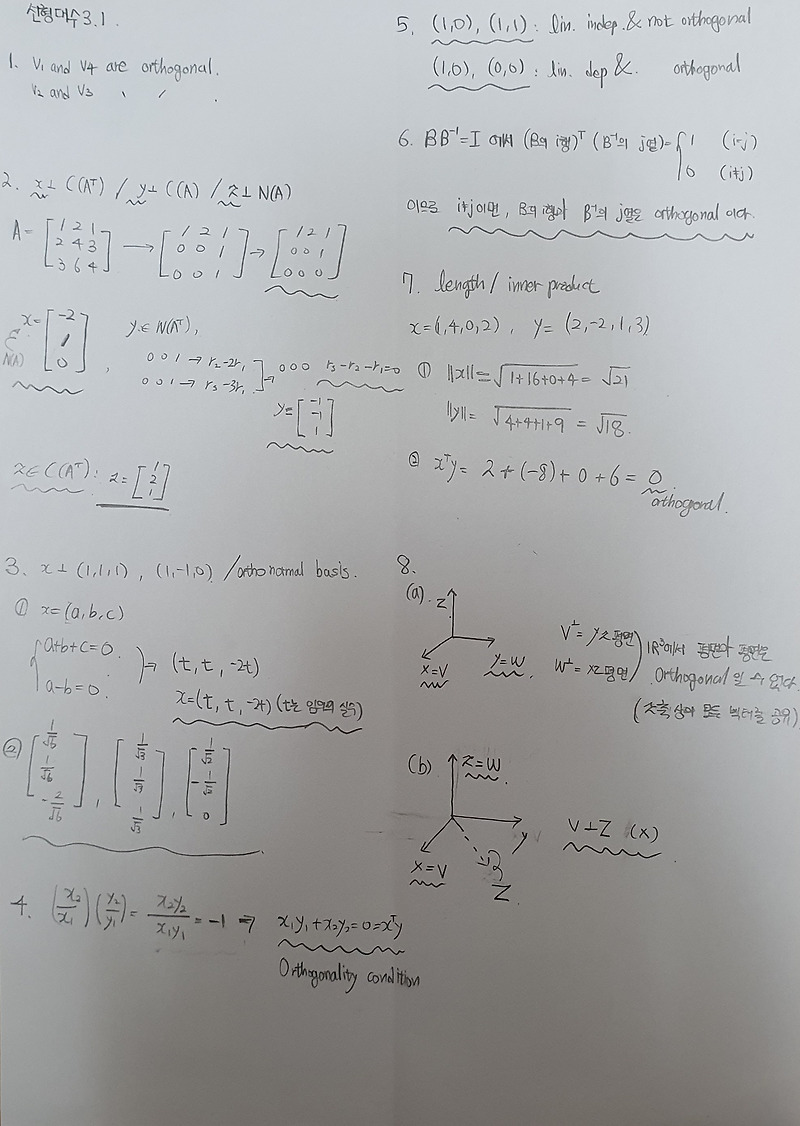 선형대수 3.1.
1. V1 and V4 are orthogonal.
V2 and V3 〃
2. x ⊥ C(Aᵀ) / y ⊥ C(A) / z ⊥ N(A)
A = [1 2 1; 2 4 3; 3 6 4] → [1 2 1; 0 0 1; 0 0 1] → [1 2 1; 0 0 1; 0 0 0]
x = [-2; 1; 0] ∈ N(A), y ∈ N(Aᵀ),
0 0 1 → r2-2r1
0 0 1 → r3-3r1 ] → 0 0 0 r3-r2-r1=0
y = [-1; -1; 1]
z ∈ C(Aᵀ): z = [1; 2; 1]
3. x ⊥ (1,1,1), (1,-1,0) / orthonormal basis.
① x=(a,b,c)
{ a+b+c=0.
a-b=0. } → (t, t, -2t)
x=(t, t, -2t) (t는 임의의 실수)
② [1/√6; 1/√6; -2/√6], [1/√3; 1/√3; 1/√3], [1/√2; -1/√2; 0]
4. (x2/x1)(y2/y1) = x2y2/x1y1 = -1 ⇒ x1y1+x2y2=0=xᵀy
Orthogonality condition
5. (1,0), (1,1) : lin. indep. & not orthogonal
(1,0), (0,0) : lin. dep &. orthogonal
6. BB⁻¹=I 에서 (B의 i행)ᵀ (B⁻¹의 j열)= { 1 (i=j)
0 (i≠j)
이므로 i≠j이면, B의 i행과 B⁻¹의 j열은 orthogonal 이다.
7. length / inner product
x=(1,4,0,2), y= (2,-2,1,3)
① ||x||= √1+16+0+4 = √21
||y||= √4+4+1+9 = √18.
② xᵀy= 2+(-8)+0+6 = 0
orthogonal.
8.
(a). z
x=V y=W.
V⊥= yz평면
W⊥= xz평면 ) ℝ³에서 평면과 평면은
Orthogonal 일 수 없다.
(z축 상의 모든 벡터를 공유)
(b) z=W
y
x=V
Z
V⊥Z (X)